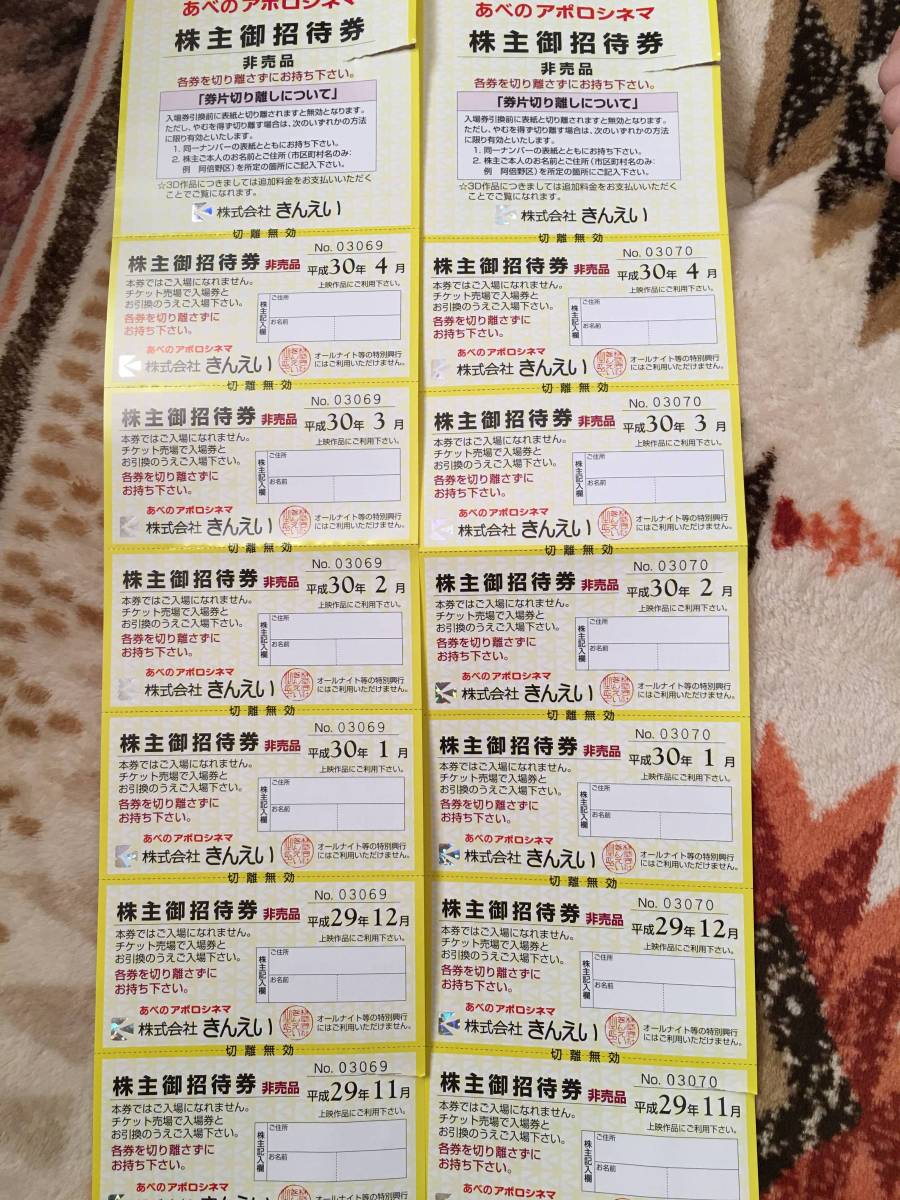 あべのアポロシネマ
株主御招待券
非売品
各券を切り離さずにお持ち下さい。
「券片切り離しについて」
入場券引換前に表紙と切り離されますと無効となります。
ただし、やむを得ず切り離す場合は、次のいずれかの方法
に限り有効といたします。
1. 同一ナンバーの表紙とともにお持ち下さい。
2. 株主ご本人のお名前とご住所(市区町村名のみ:
例 阿倍野区)を所定の箇所にご記入下さい。
☆3D作品につきましては追加料金をお支払いいただく
ことでご覧になれます。
株式会社 きんえい
切離無効
No. 03069
株主御招待券 非売品 平成30年 4月
本券ではご入場になれません。
上映作品にご利用下さい。
チケット売場で入場券と
お引換のうえご入場下さい。
各券を切り離さずに
お持ち下さい。
株主記入欄
ご住所
お名前
あべのアポロシネマ
株式会社 きんえい
オールナイト等の特別興行
にはご利用いただけません。
切離無効
No. 03069
株主御招待券 非売品 平成30年 3月
本券ではご入場になれません。
上映作品にご利用下さい。
チケット売場で入場券と
お引換のうえご入場下さい。
各券を切り離さずに
お持ち下さい。
株主記入欄
ご住所
お名前
あべのアポロシネマ
株式会社 きんえい
オールナイト等の特別興行
にはご利用いただけません。
切離無効
No. 03069
株主御招待券 非売品 平成30年 2月
本券ではご入場になれません。
上映作品にご利用下さい。
チケット売場で入場券と
お引換のうえご入場下さい。
各券を切り離さずに
お持ち下さい。
株主記入欄
ご住所
お名前
あべのアポロシネマ
株式会社 きんえい
オールナイト等の特別興行
にはご利用いただけません。
切離無効
No. 03069
株主御招待券 非売品 平成30年 1月
本券ではご入場になれません。
上映作品にご利用下さい。
チケット売場で入場券と
お引換のうえご入場下さい。
各券を切り離さずに
お持ち下さい。
株主記入欄
ご住所
お名前
あべのアポロシネマ
株式会社 きんえい
オールナイト等の特別興行
にはご利用いただけません。
切離無効
No. 03069
株主御招待券 非売品 平成29年 12月
本券ではご入場になれません。
上映作品にご利用下さい。
チケット売場で入場券と
お引換のうえご入場下さい。
各券を切り離さずに
お持ち下さい。
株主記入欄
ご住所
お名前
あべのアポロシネマ
株式会社 きんえい
オールナイト等の特別興行
にはご利用いただけません。
切離無効
No. 03069
株主御招待券 非売品 平成29年 11月
本券ではご入場になれません。
上映作品にご利用下さい。
チケット売場で入場券と
お引換のうえご入場下さい。
各券を切り離さずに
お持ち下さい。
株主記入欄
ご住所
お名前
あべのアポロシネマ
株式会社 きんえい
オールナイト等の特別興行
あべのアポロシネマ
株主御招待券
非売品
各券を切り離さずにお持ち下さい。
「券片切り離しについて」
入場券引換前に表紙と切り離されますと無効となります。
ただし、やむを得ず切り離す場合は、次のいずれかの方法
に限り有効といたします。
1. 同一ナンバーの表紙とともにお持ち下さい。
2. 株主ご本人のお名前とご住所(市区町村名のみ:
例 阿倍野区)を所定の箇所にご記入下さい。
☆3D作品につきましては追加料金をお支払いいただく
ことでご覧になれます。
株式会社 きんえい
切離無効
No. 03070
株主御招待券 非売品 平成30年 4月
本券ではご入場になれません。
上映作品にご利用下さい。
チケット売場で入場券と
お引換のうえご入場下さい。
各券を切り離さずに
お持ち下さい。
株主記入欄
ご住所
お名前
あべのアポロシネマ
株式会社 きんえい
オールナイト等の特別興行
にはご利用いただけません。
切離無効
No. 03070
株主御招待券 非売品 平成30年 3月
本券ではご入場になれません。
上映作品にご利用下さい。
チケット売場で入場券と
お引換のうえご入場下さい。
各券を切り離さずに
お持ち下さい。
株主記入欄
ご住所
お名前
あべのアポロシネマ
株式会社 きんえい
オールナイト等の特別興行
にはご利用いただけません。
切離無効
No. 03070
株主御招待券 非売品 平成30年 2月
本券ではご入場になれません。
上映作品にご利用下さい。
チケット売場で入場券と
お引換のうえご入場下さい。
各券を切り離さずに
お持ち下さい。
株主記入欄
ご住所
お名前
あべのアポロシネマ
株式会社 きんえい
オールナイト等の特別興行
にはご利用いただけません。
切離無効
No. 03070
株主御招待券 非売品 平成30年 1月
本券ではご入場になれません。
上映作品にご利用下さい。
チケット売場で入場券と
お引換のうえご入場下さい。
各券を切り離さずに
お持ち下さい。
株主記入欄
ご住所
お名前
あべのアポロシネマ
株式会社 きんえい
オールナイト等の特別興行
にはご利用いただけません。
切離無効
No. 03070
株主御招待券 非売品 平成29年 12月
本券ではご入場になれません。
上映作品にご利用下さい。
チケット売場で入場券と
お引換のうえご入場下さい。
各券を切り離さずに
お持ち下さい。
株主記入欄
ご住所
お名前
あべのアポロシネマ
株式会社 きんえい
オールナイト等の特別興行
にはご利用いただけません。
切離無効
No. 03070
株主御招待券 非売品 平成29年 11月
本券ではご入場になれません。
上映作品にご利用下さい。
チケット売場で入場券と
お引換のうえご入場下さい。
各券を切り離さずに
お持ち下さい。
株主記入欄
ご住所
お名前
あべのアポロシネマ